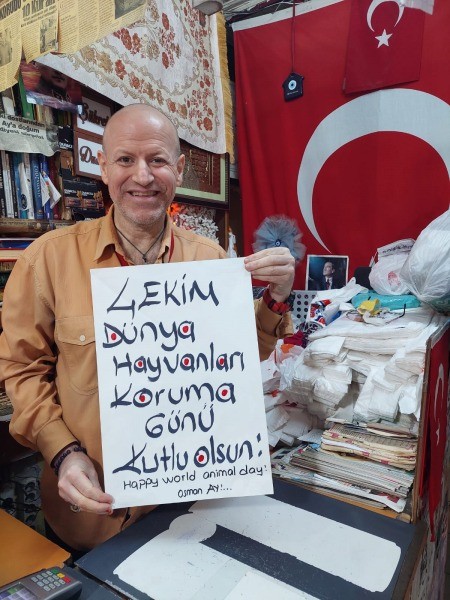 4 EKİM
DÜNYA
HAYVANLARI
KORUMA
GÜNÜ
KUTLU OLSUN!
Happy world animal day!
OSMAN AY!...
Ay'a doğum